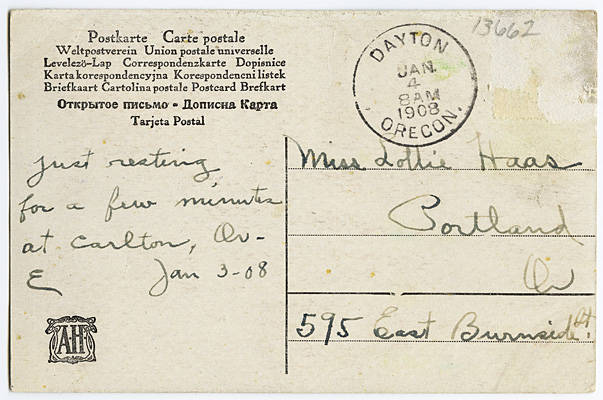 Postkarte Carte postale
Weltpostverein Union postale universelle
Levelező-Lap Correspondenzkarte Dopisnice
Karta korespondencyjna Korespondenční lístek
Briefkaart Cartolina postale Postcard Brefkart
Открытое письмо - Дописна Карта
Tarjeta Postal
13662
DAYTON
JAN.
4
8AM
1908
OREGON.
just resting
for a few minutes
at Carlton, Or-
E Jan 3-08
AH
Miss Lottie Haas
Portland
Or
595 East Burnside St.